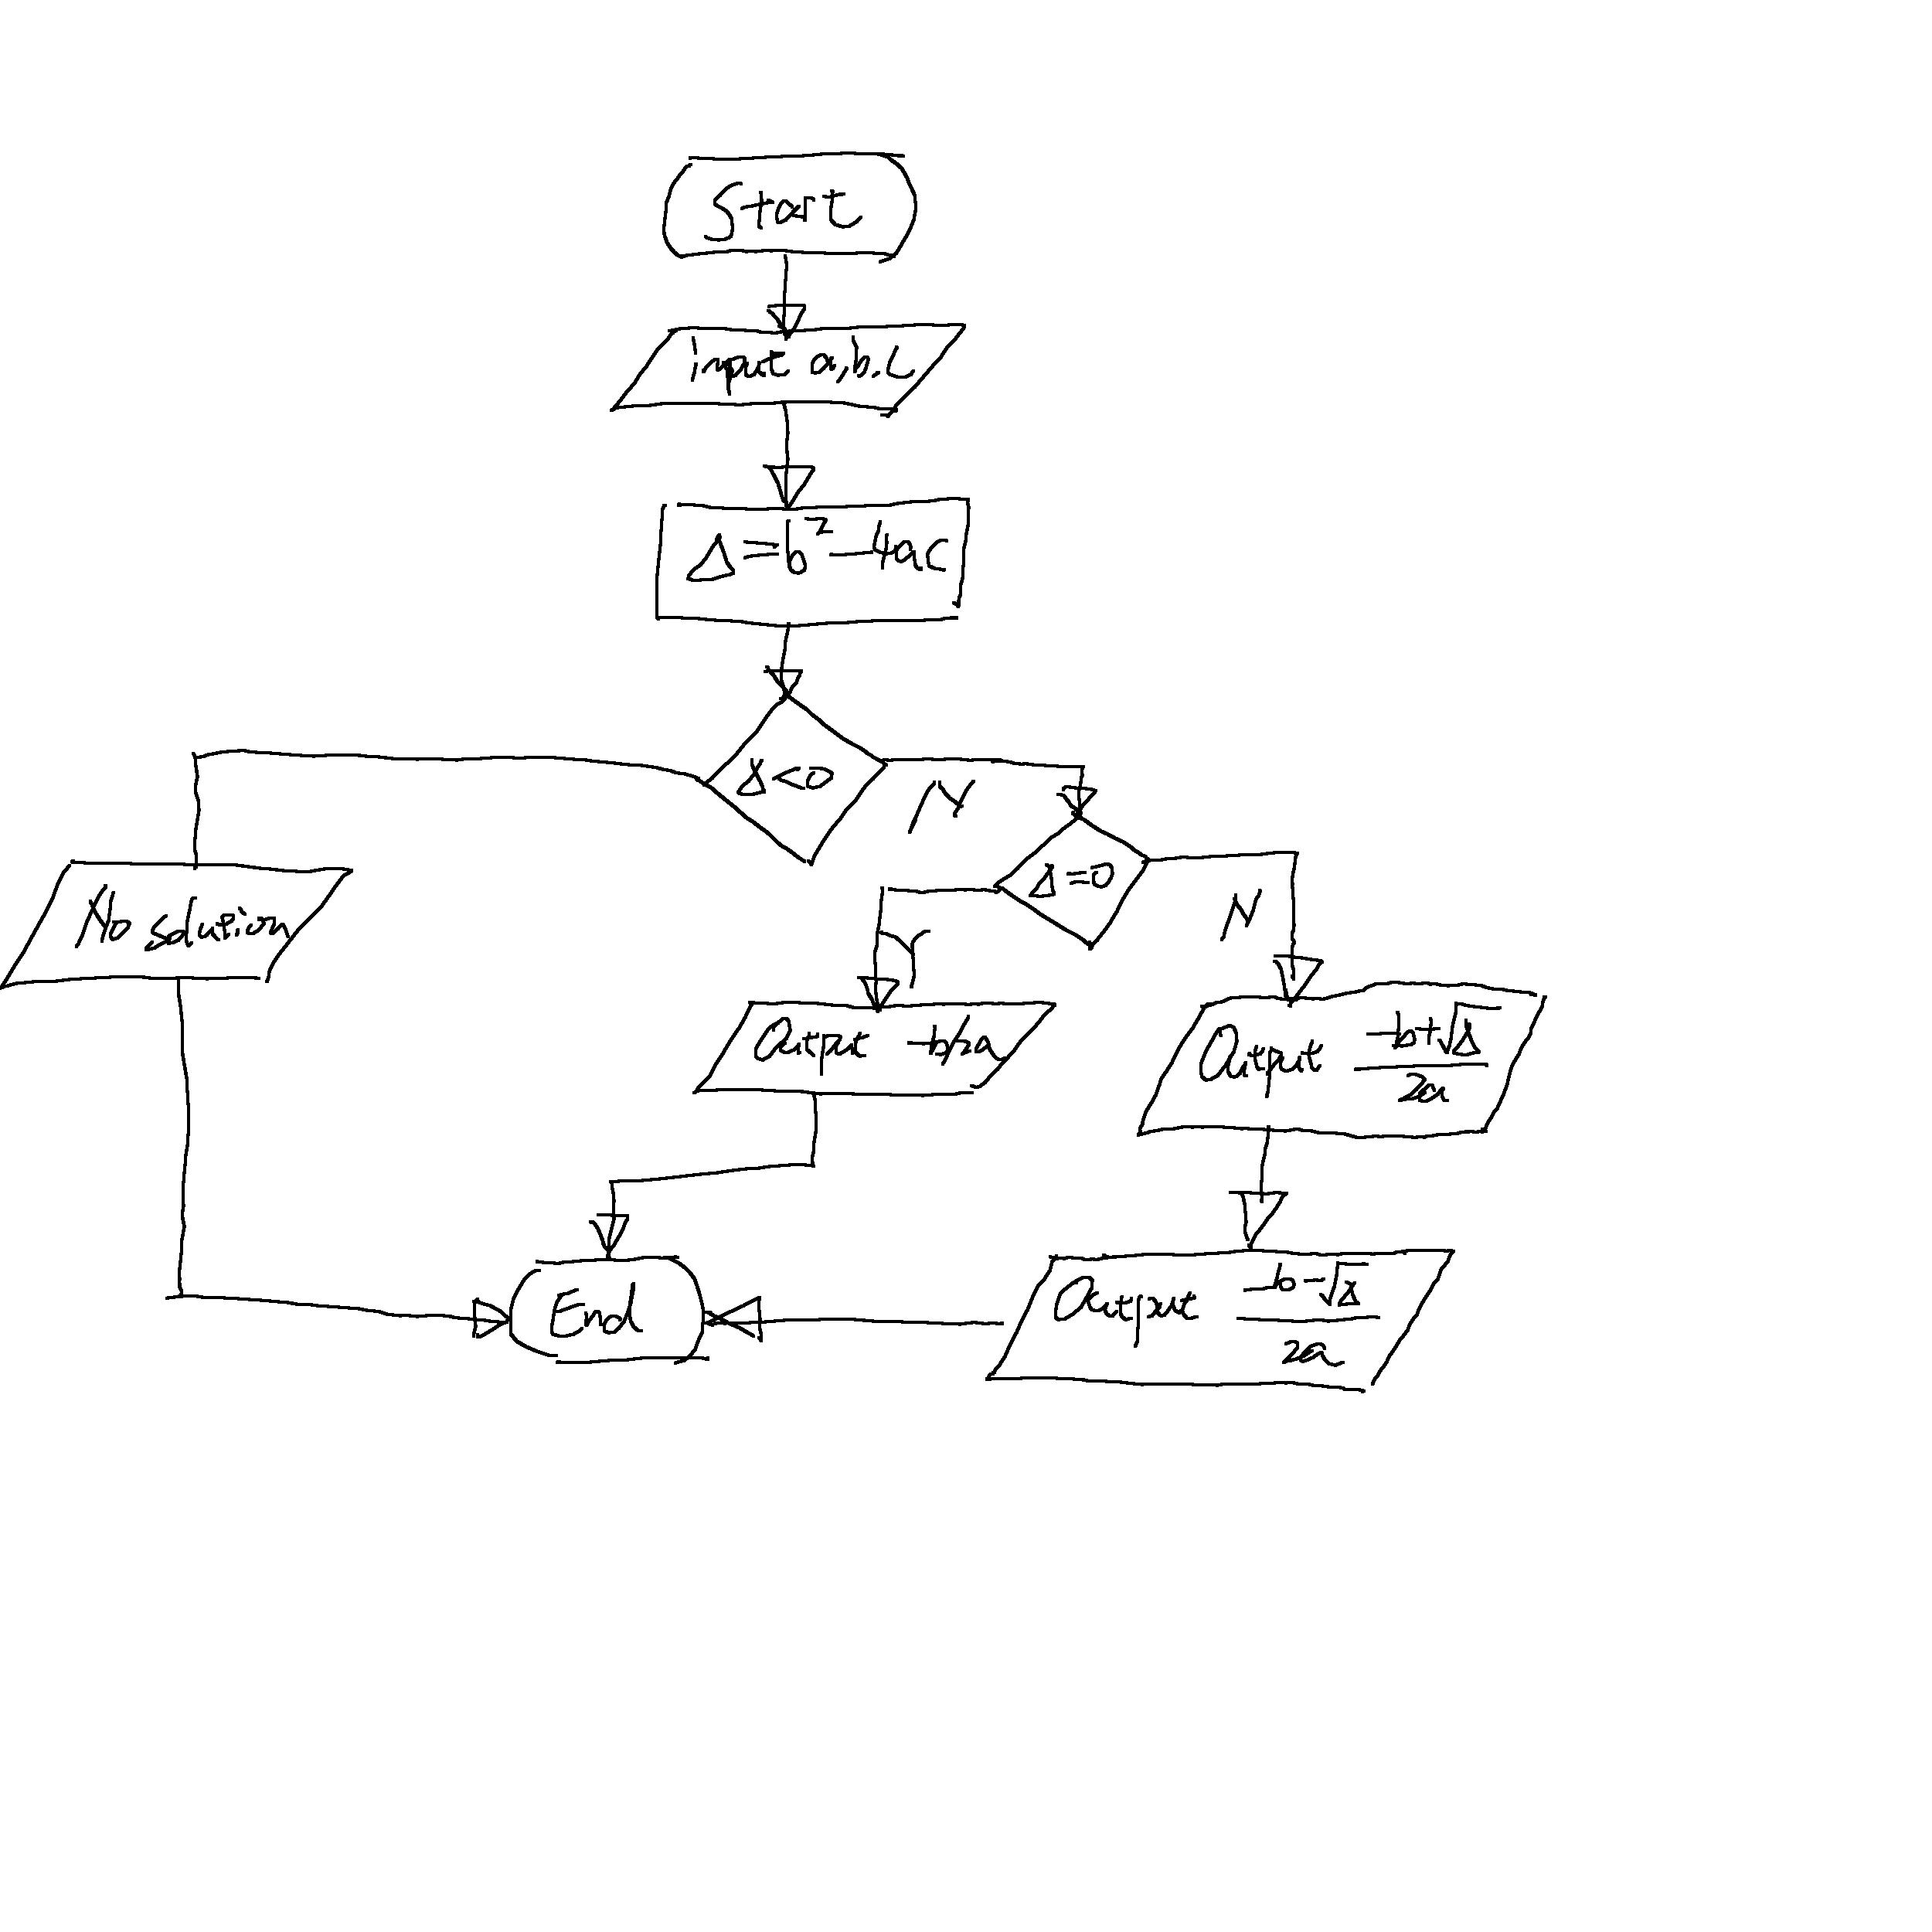 Start
input a,b.c
Δ=b²-4ac
Δ<0
N
Δ=0
N
No solution
Y
Output -b/2a
Output (-b+√Δ)/2a
Output (-b-√Δ)/2a
End